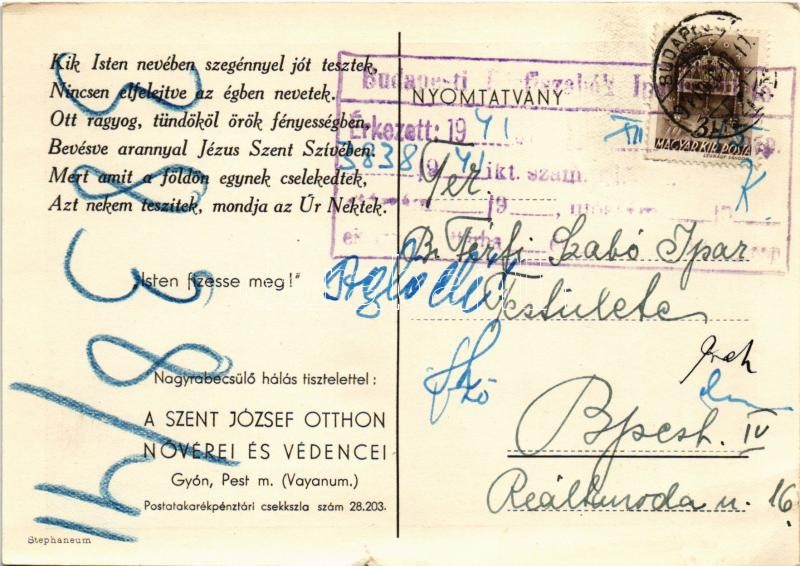 Kik Isten nevében szegénnyel jót tesztek,
Nincsen elfelejtve az égben nevetek.
Ott ragyog, tündököl örök fényességben,
Bevésve arannyal Jézus Szent Szívében.
Mert amit a földön egynek cselekedtek,
Azt nekem teszitek, mondja az Úr Nektek.
„Isten fizesse meg!"
Nagyrabecsülő hálás tisztelettel:
A SZENT JÓZSEF OTTHON
NŐVÉREI ÉS VÉDENCEI
Gyón, Pest m. (Vayanum.)
Postatakarékpénztári csekkszla szám 28.203.
Stephaneum
3838/41
NYOMTATVÁNY
Budapesti Férfiszabók
Érkezett: 19 41 XII
3838/19 41 ikt. szám.
MAGYAR KIR. POSTA
BUDAPEST
K.
Br. Férfi Szabó Ipar
Testülete
Bpest. IV
Reáltanoda u. 16